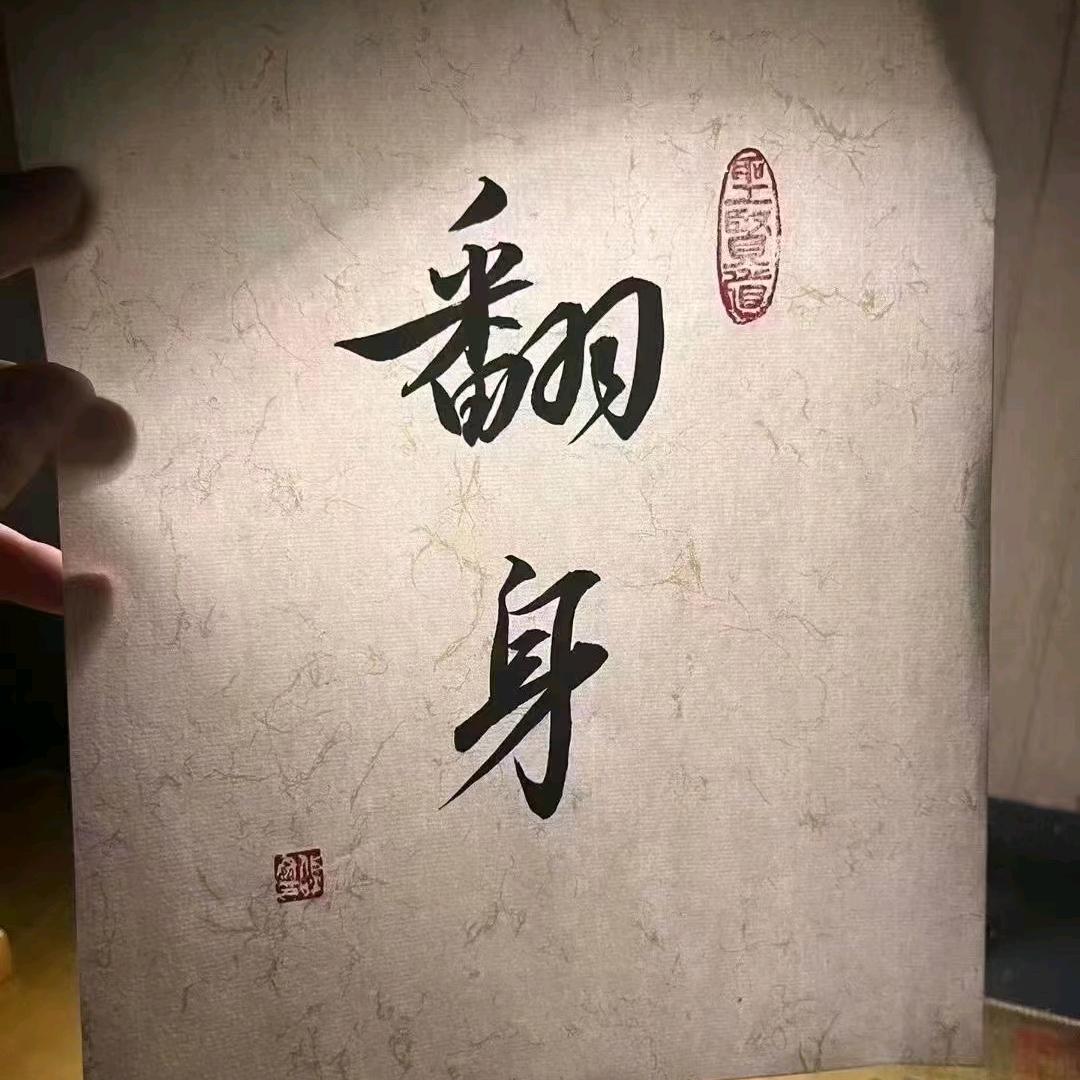 翻身
聖賢道